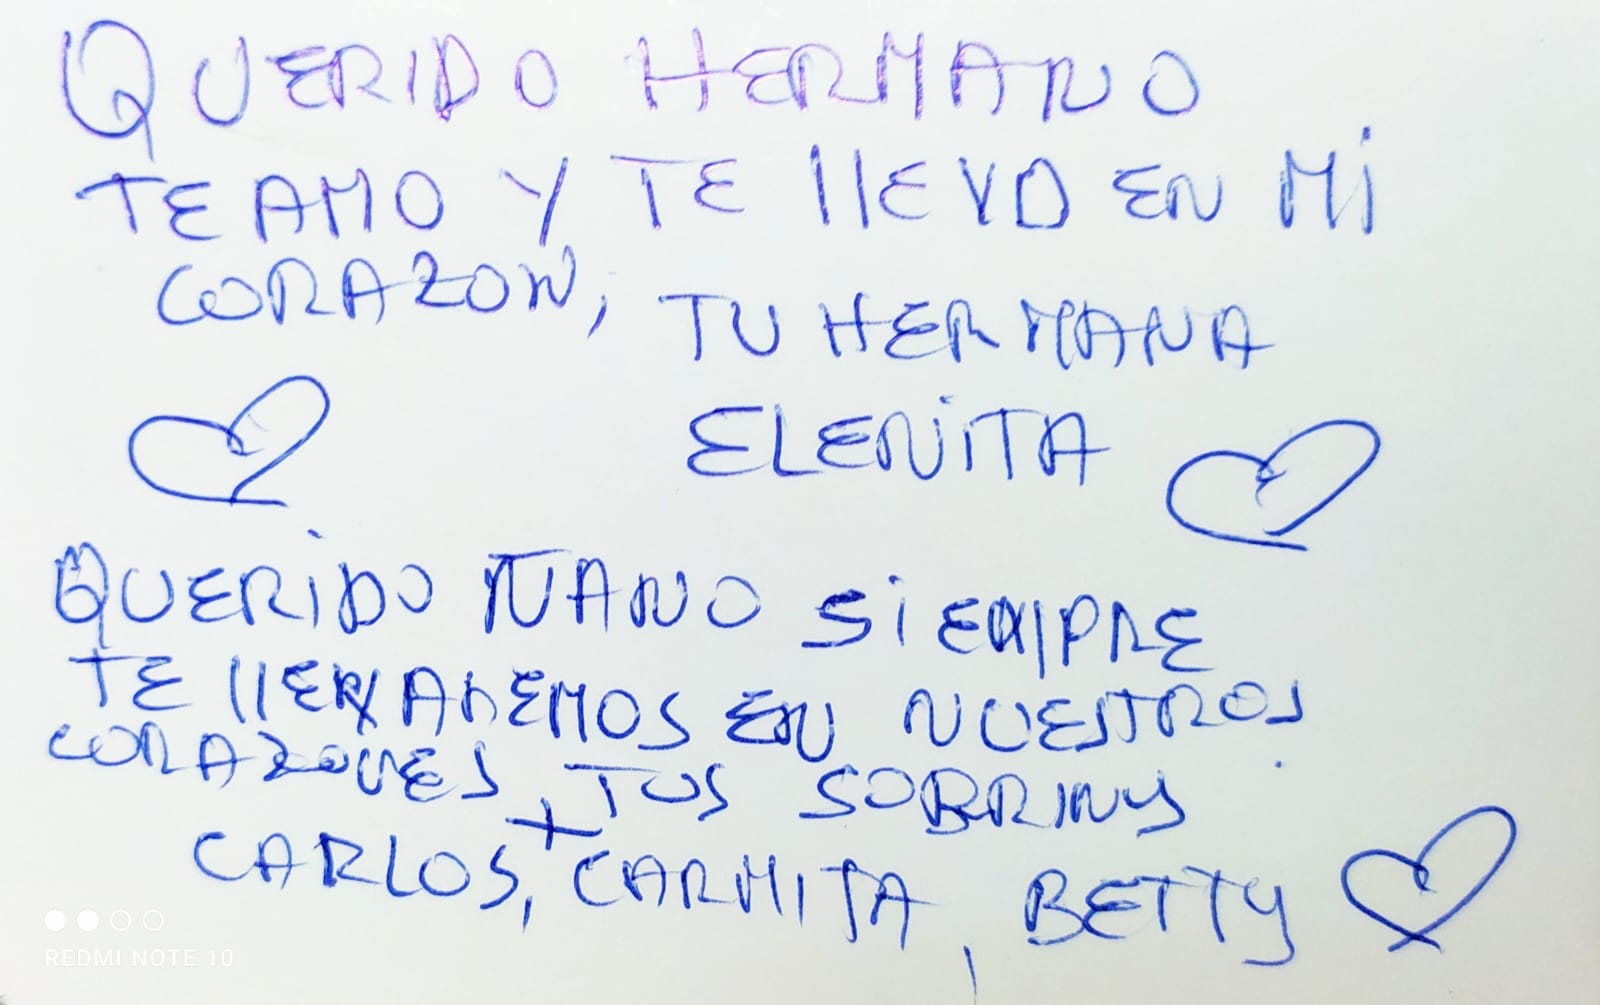 QUERIDO HERMANO
TE AMO Y TE llEVO EN Mi
CORAZON, TU HERMANA
ELENiTA
QUERiDO ÑAÑO SiEMPRE
TE llEVAREMOS EN NUESTROS
CORAZONES, TUS SOBRINOS
CARLOS, + CARMITA, BETTY
REDMI NOTE 10